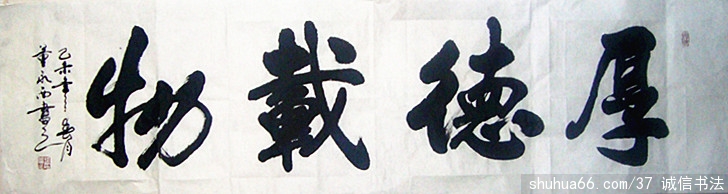 厚德載物
乙未年
書
shuhua66.com/37 诚信书法